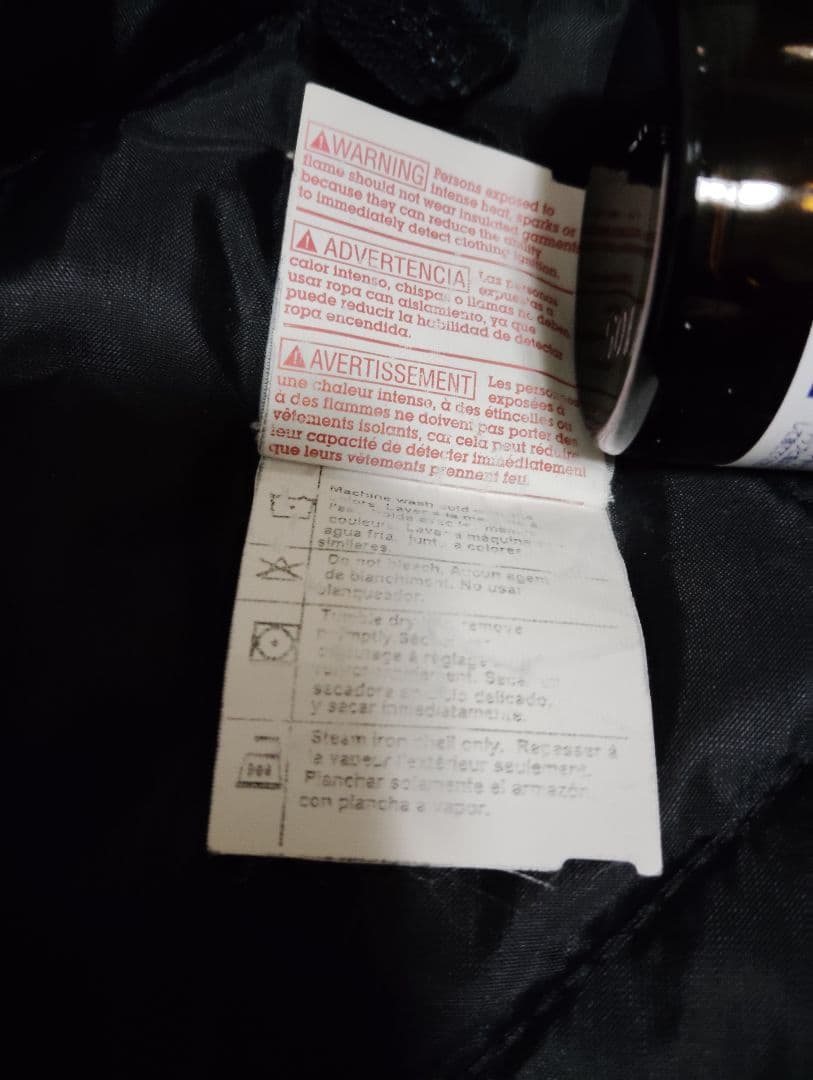 WARNING Persons exposed to
intense heat, sparks or
flame should not wear insulated garments
because they can reduce the ability
to immediately detect clothing ignition.
ADVERTENCIA Las personas
expuestas a
calor intenso, chispas o llamas no deben
usar ropa can aislamiento, ya que
puede reducir la habilidad de detectar
ropa encendida.
AVERTISSEMENT Les personnes
exposées à
une chaleur intense, à des étincelles ou
à des flammes ne doivent pas porter des
vêtements isolants, car cela peut réduire
leur capacité de détecter immédiatement
que leurs vêtements prennent feu.
Machine wash cold
couleurs. Lavar a máquina
agua fria, junto a colores
similares.
Do not bleach. Aucun agent
de blanchiment. No usar
blanqueador.
Tumble dry remove
promptly.
réglage
secadora delicado,
y secar inmediatamente.
Steam iron shell only. Repasser à
la vapeur l'extérieur seulement.
Planchar solamente el armazón
con plancha a vapor.